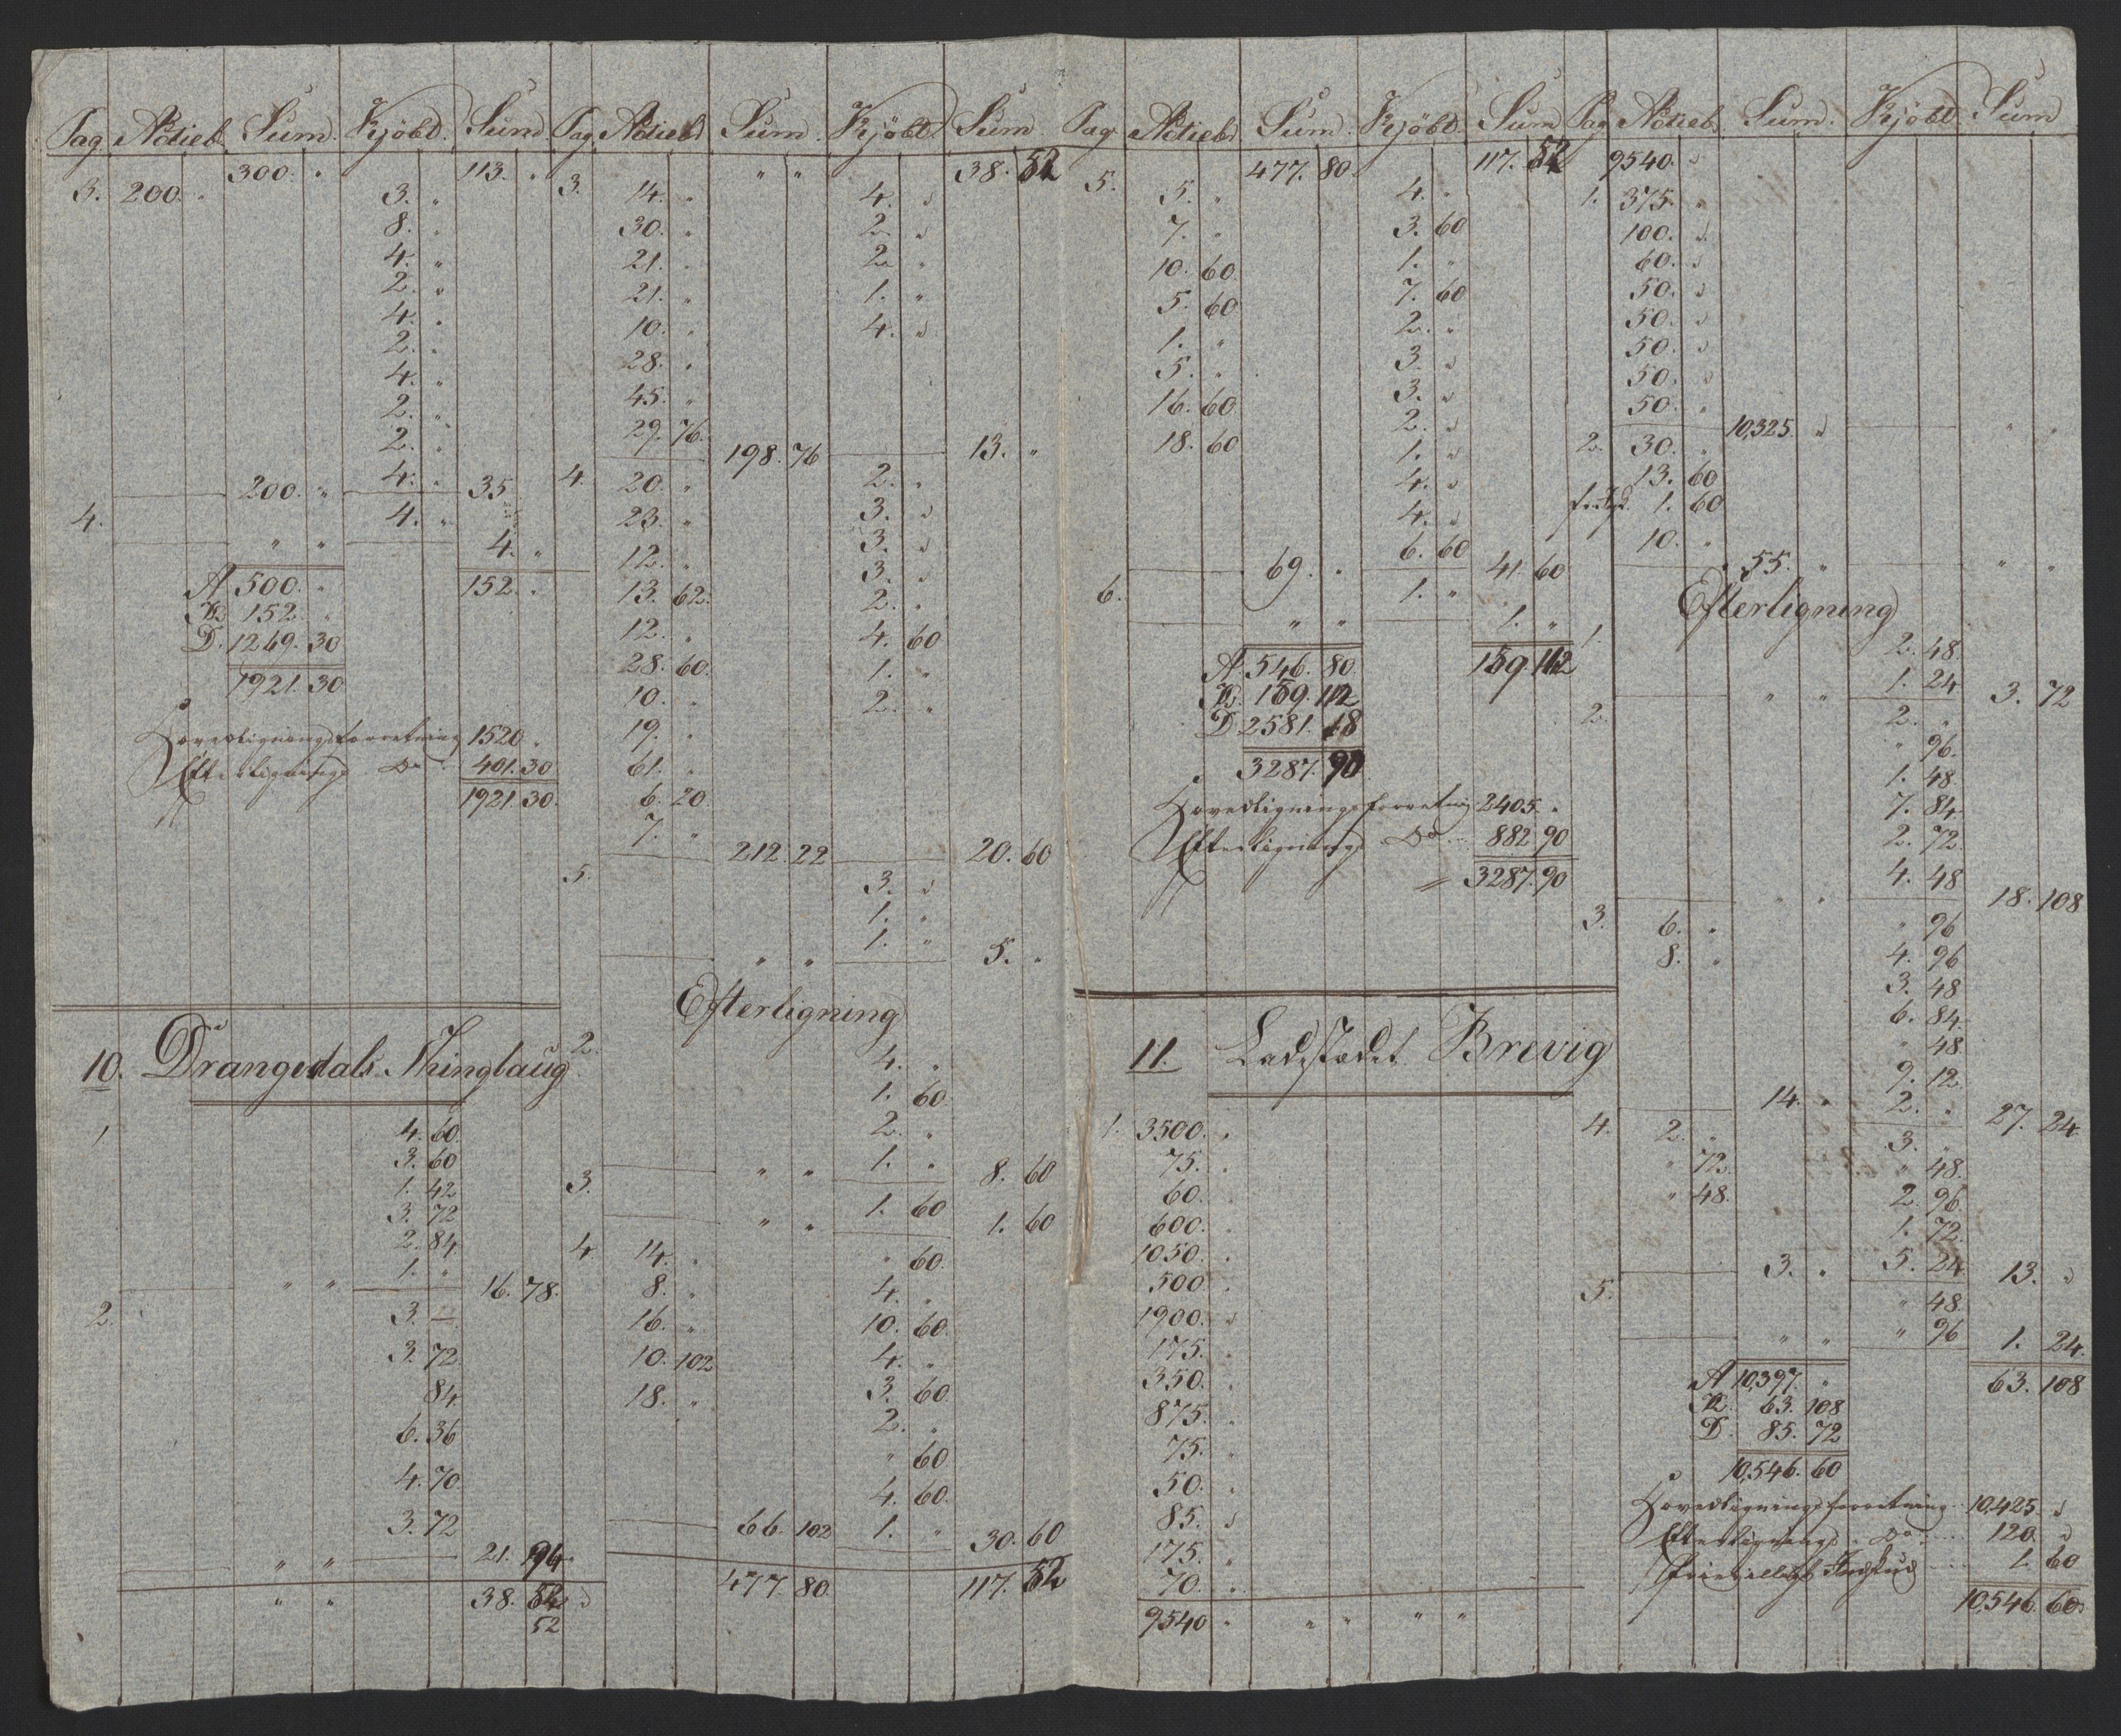 Pag. Actieb. Sum. Kjöbt. Sum
300. " 113. "
3. 200. " 3. "
8. "
4. "
2. "
4. "
2. "
4. "
2. "
2. "
4. "
200. " 35
4. 4. "
" " 4. "
A 500. " 152. "
K. 152. "
D. 1269. 30
1921. 30
Hovedligningsforretning 1520 "
Efterlignings Do 401. 30
1921. 30.
10. Drangedals Thinglaug
1 4. 60.
3. 60
1. 42
3. 72
2. 84
1. "
" " 16. 78.
2. 3. —
3. 72
84
6. 36
4. 70
3. 72
" " 21. 94
" " 38. 52
52
Pag. Actieb. Sum. Kjöbt. Sum
" " 38. 52
3. 14. " 4. "
30. " 2. "
21. " 2. "
21. " 1. "
10. " 4. "
28. "
45. "
29. 76.
198. 76 13. "
4. 20. " 2. "
23. " 3. "
12. " 3. "
13. 62. 3. "
12. " 2. "
28. 60. 4. 60
10. " 1. "
19. " 2. "
61. "
6. 20
7. "
212. 22 20. 60
5. 3. "
1. "
1. "
" " 5. "
Efterligning
2. 4. "
1. 60
2. "
1. "
" " 8. 60
3. 1. 60
" " 1. 60
4. 14. " " 60
8. " 4. "
16. " 10. 60
10. 102 4. "
18. " 3. 60
2. "
" 60
4. 60
1. "
66. 102 30. 60
477. 80. 117. 52
Pag. Actieb. Sum. Kjöbt. Sum
477. 80 117. 52
5. 5. " 4. "
7. " 3. 60
10. 60. 1. "
5. 60 7. 60
1. " 2. "
5. " 3. "
16. 60 3. "
18. 60 2. "
1. "
4. "
4. "
6. 60
69. " 41. 60
6. 1. "
" " 1. "
A. 546. 80. 159. 112
K. 159. 112
D 2581. 18
3287. 90
Hovedligningsforretning 2405. "
Efterlignings Do 882. 90
3287. 90
11. Ladestædet Brevig
1. 3500. "
75. "
60. "
600. "
1050. "
500. "
1900. "
175. "
350. "
875. "
75. "
50. "
85. "
175. "
70. "
9540 " " " " "
Pag Actieb. Sum. Kjöbt Sum
9540. "
1. 375. "
100. "
60. "
50. "
50. "
50. "
50. "
50. "
10,325. " " "
2. 30. "
13. 60
1. 60
10. "
55. " " "
Efterligning
1. 2. 48.
1. 24
" " 3. 72
2. 2. "
" 96.
1. 48.
7. 84.
2. 72.
4. 48
" " 18. 108
3. 6. " " 96
8. " 4. 96
3. 48
6. 84.
" 48.
9. 12.
2. "
14. " 27. 24
4. 2. " 3. "
" 72 " 48.
" 48. 2. 96.
1. 72.
5. 24
3. " 13. "
5. " 48.
" 96
" " 1. 24.
A 10,397. " 63. 108
K. 63. 108
D. 85. 72
10,546. 60
Hovedligningsforretning 10,425. "
Efterlignings Do 120. "
Frievilligt Indskud 1. 60
10,546. 60